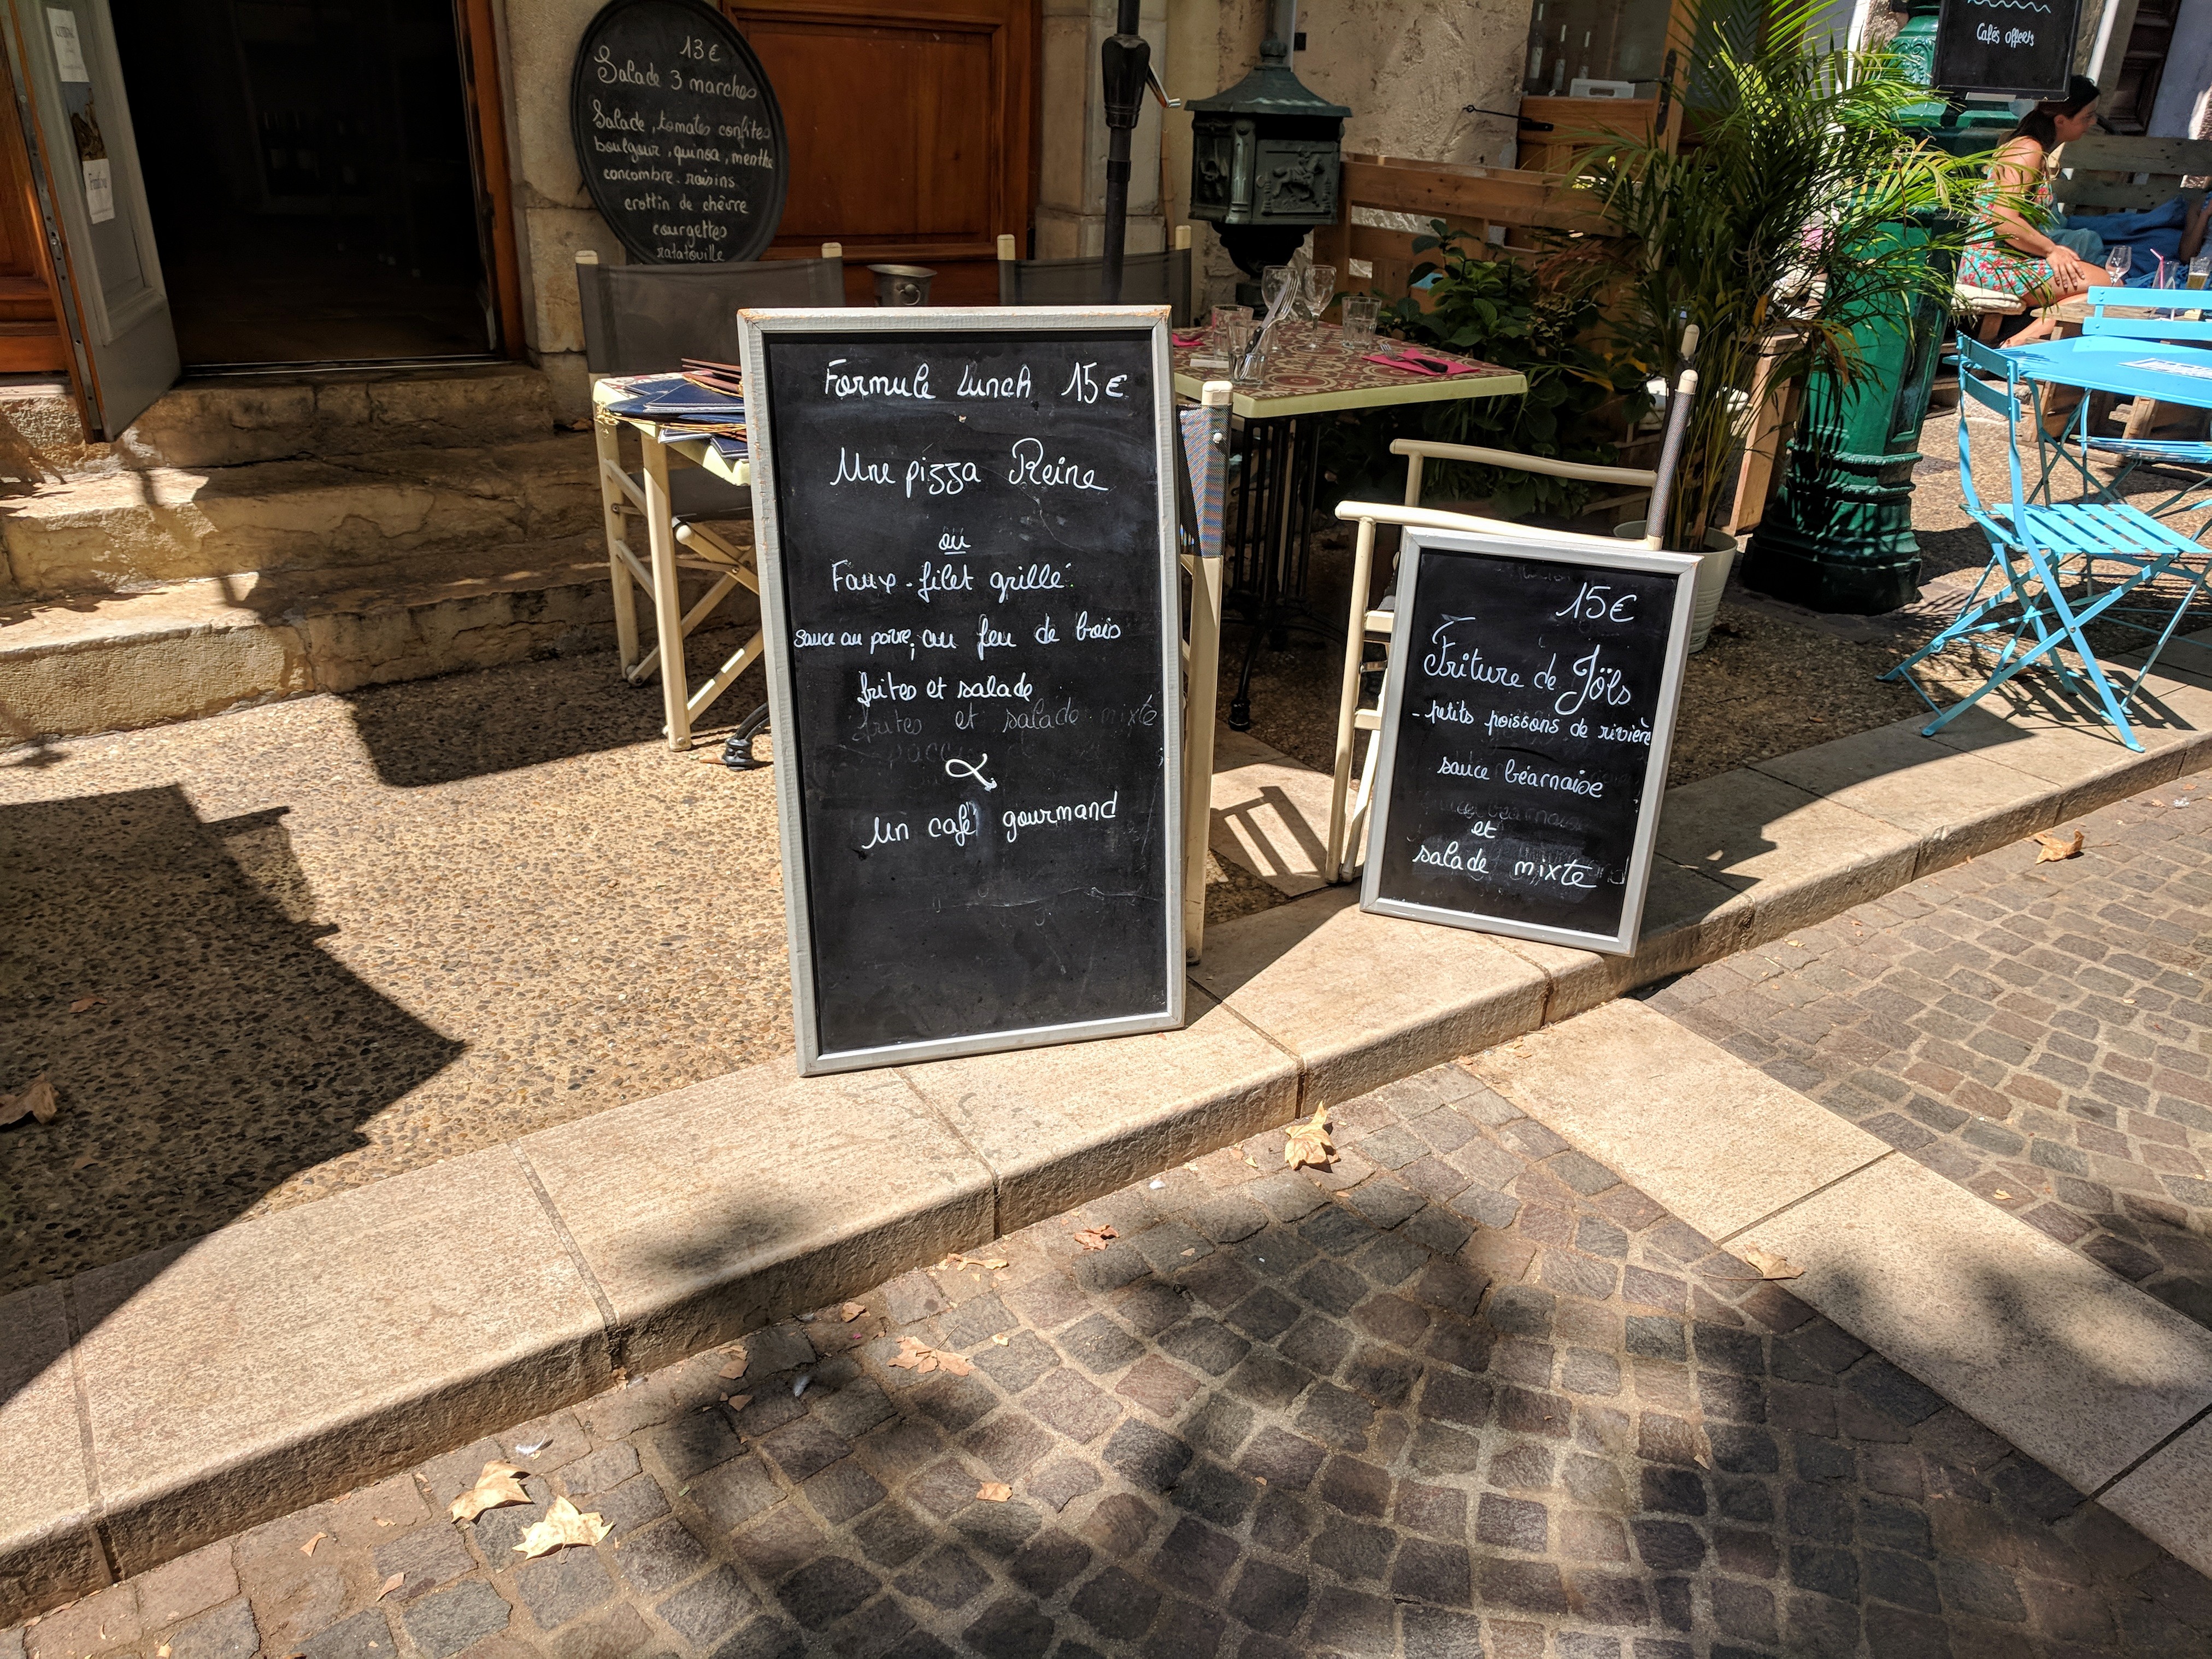 13€
Salade 3 marches
Salade, tomates confites
boulgour, quinoa, menthe
concombre. raisins
crottin de chèvre
courgettes
ratatouille
Formule Lunch 15€
Une pizza Reine
ou
Faux-filet grillé
sauce au poivre, au feu de bois
frites et salade
frites et salade mixte
&
un café gourmand
15€
Friture de Jöls
- petits poissons de rivière
sauce béarnaise
et
salade mixte
Cafés offerts